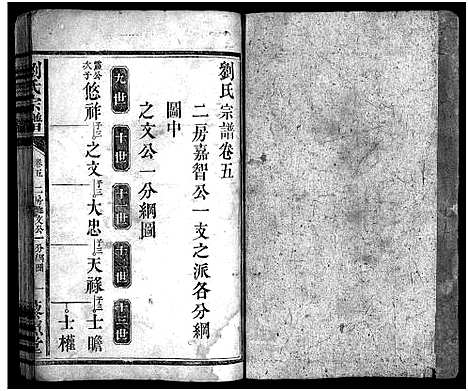 劉氏宗譜卷五
二房嘉智公一支之派各分綱
圖中
之文公一分綱圖
九世
十世
十一世
十二世
十三世
次子
悠祚
子三
之文
子三
大忠
子三
天祿
子三
士瞻
士權
劉氏宗譜
卷五
二房之文公一分綱圖